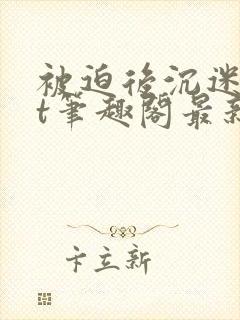 被迫后沉迷
t笔趣阁最新
卞立新